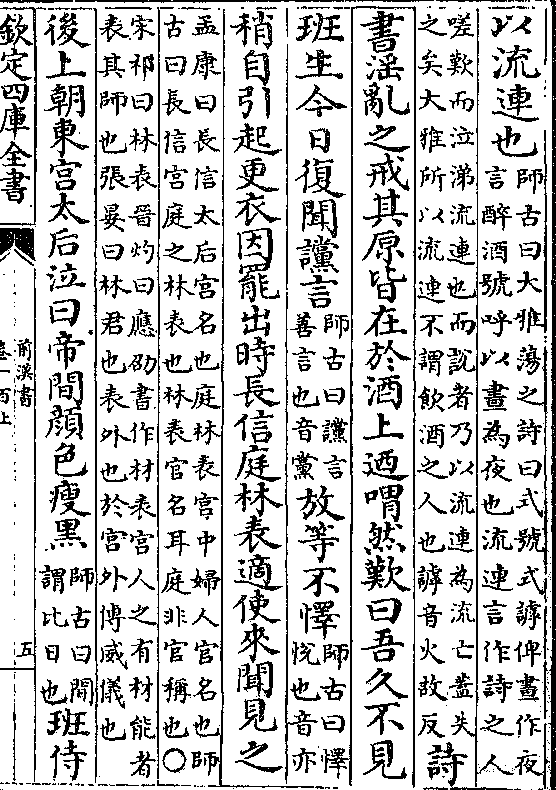 以流連也師古曰大雅蕩之詩曰式號式謼俾晝作夜
言醉酒號呼以晝為夜也流連言作詩之人
嗟歎而泣涕流連也而說者乃以流連為流亡蓋失
之矣大雅所以流連不謂飲酒之人也謼音火故反詩
書淫亂之戒其原皆在於酒上迺喟然歎曰吾久不見
班生今日復聞讜言師古曰讜言善言也音黨放等不懌師古曰懌悅也音亦
稍自引起更衣因罷出時長信庭林表適使來聞見之
孟康曰長信太后宮名也庭林表宮中婦人官名也師
古曰長信宮庭之林表也林表官名耳庭非官稱也○
宋祁曰林表晉灼曰應劭書作材表宮人之有材能者
表其師也張晏曰林君也表外也於宮外傅威儀也
後上朝東宮太后泣曰帝間顔色瘦黑師古曰間謂比日也班侍
欽定四庫全書
前漢書
卷一百上
五